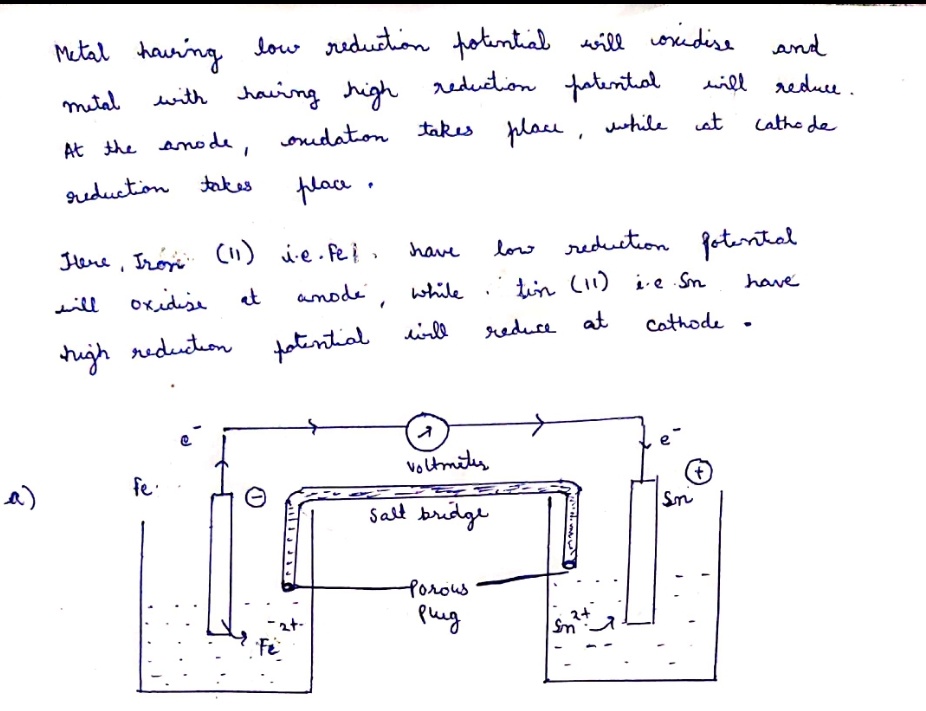 Metal having low reduction potential will oxidise and
metal with having high reduction potential will reduce.
At the anode, oxidation takes place, while at cathode
reduction takes place.
Here, Iron (II) i.e. Fe have low reduction potential
will oxidise at anode, while tin (II) i.e Sn have
high reduction potential will reduce at cathode.
e⁻ e⁻
Voltmeter
a) Fe ⊖ ⊕ Sn
Salt bridge
Porous
Plug
Fe²⁺ Sn²⁺